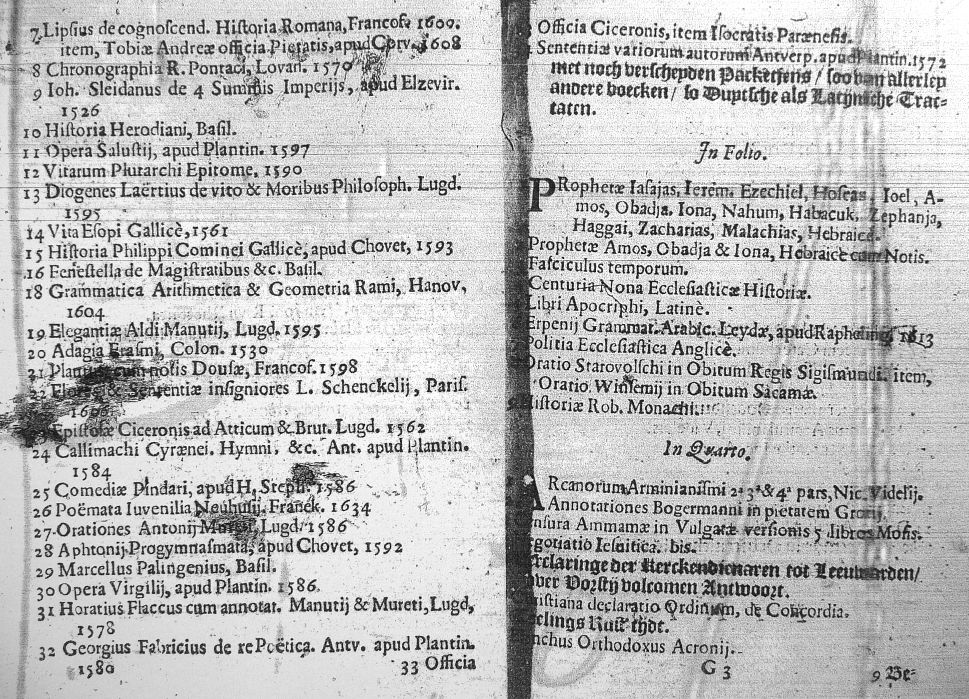 7 Lipsius de cognoscend. Historia Romana, Francof. 1600.
item, Tobiæ Andreæ officia Pietatis, apud Corv. 1608
8 Chronographia R. Pontaci, Lovan. 1570
9 Ioh. Sleidanus de 4 Summis Imperijs, apud Elzevir.
1526
10 Historia Herodiani, Basil.
11 Opera Salustij, apud Plantin. 1597
12 Vitarum Plutarchi Epitome. 1590
13 Diogenes Laërtius de vito & Moribus Philosoph. Lugd.
1595
14 Vita Esopi Gallicè, 1561
15 Historia Philippi Cominei Gallicè, apud Chovet, 1593
16 Fenestella de Magistratibus &c. Basil.
18 Grammatica Arithmetica & Geometria Rami, Hanov,
1604
19 Elegantiæ Aldi Manutij, Lugd. 1595
20 Adagia Erasmi, Colon. 1530
21 Plautus cum notis Dousæ, Francof. 1598
22 Flores & Sententiæ insigniores L. Schenckelij, Paris.
1606
23 Epistolæ Ciceronis ad Atticum & Brut. Lugd. 1562
24 Callimachi Cyrænei. Hymni, &c. Ant. apud Plantin.
1584
25 Comediæ Pindari, apud H, Steph. 1586
26 Poëmata Iuvenilia Neuhusij. Franek. 1634
27 Orationes Antonij Lugd. 1586
28 Aphtonij Progymnasmata, apud Chovet, 1592
29 Marcellus Palingenius, Basil.
30 Opera Virgilij, apud Plantin. 1586.
31 Horatius Flaccus cum annotat. Manutij & Mureti, Lugd,
1578
32 Georgius Fabricius de re Poëtica. Antv. apud Plantin.
1580
33 Officia
Officia Ciceronis, item Isocratis Parænesis.
Sententiæ variorum autorum Antverp. apud Plantin. 1572
met noch verscheyden Packetjens / soo van allerley
andere boecken / so Duytsche als Latynsche Trac-
taten.
In Folio.
PRophetæ Iasajas, Ierem. Ezechiel, Hoseas, Ioel, A-
mos, Obadja. Iona, Nahum, Habacuk, Zephanja,
Haggai, Zacharias, Malachias, Hebraicè.
Prophetæ Amos, Obadja & Iona, Hebraicè cum Notis.
Fasciculus temporum.
Centuria Nona Ecclesiasticæ Historiæ.
Libri Apocriphi, Latinè.
Erpenij Grammat. Arabic. Leydæ, apud Rapheling, 1613
Politia Ecclesiastica Anglicè.
Oratio Starovolschi in Obitum Regis Sigismundi. item,
Oratio. Winsemij in Obitum Sacamæ.
Historiæ Rob. Monachi.
In Quarto.
ARcanorum Arminianismi 2ª 3ª & 4ª pars, Nic. Videlij.
Annotationes Bogermanni in pietatem Grotij.
Censura Ammamæ in Vulgatæ versionis 5 libros Mosis.
Negotiatio Iesuitica. bis.
Verclaringe der Kerckendienaren tot Leeuwarden /
over Vorstij volcomen Antwoort.
Christiana declaratio Ordinum, de Concordia.
Orthodoxus Acronij.
G 3
9 Be-